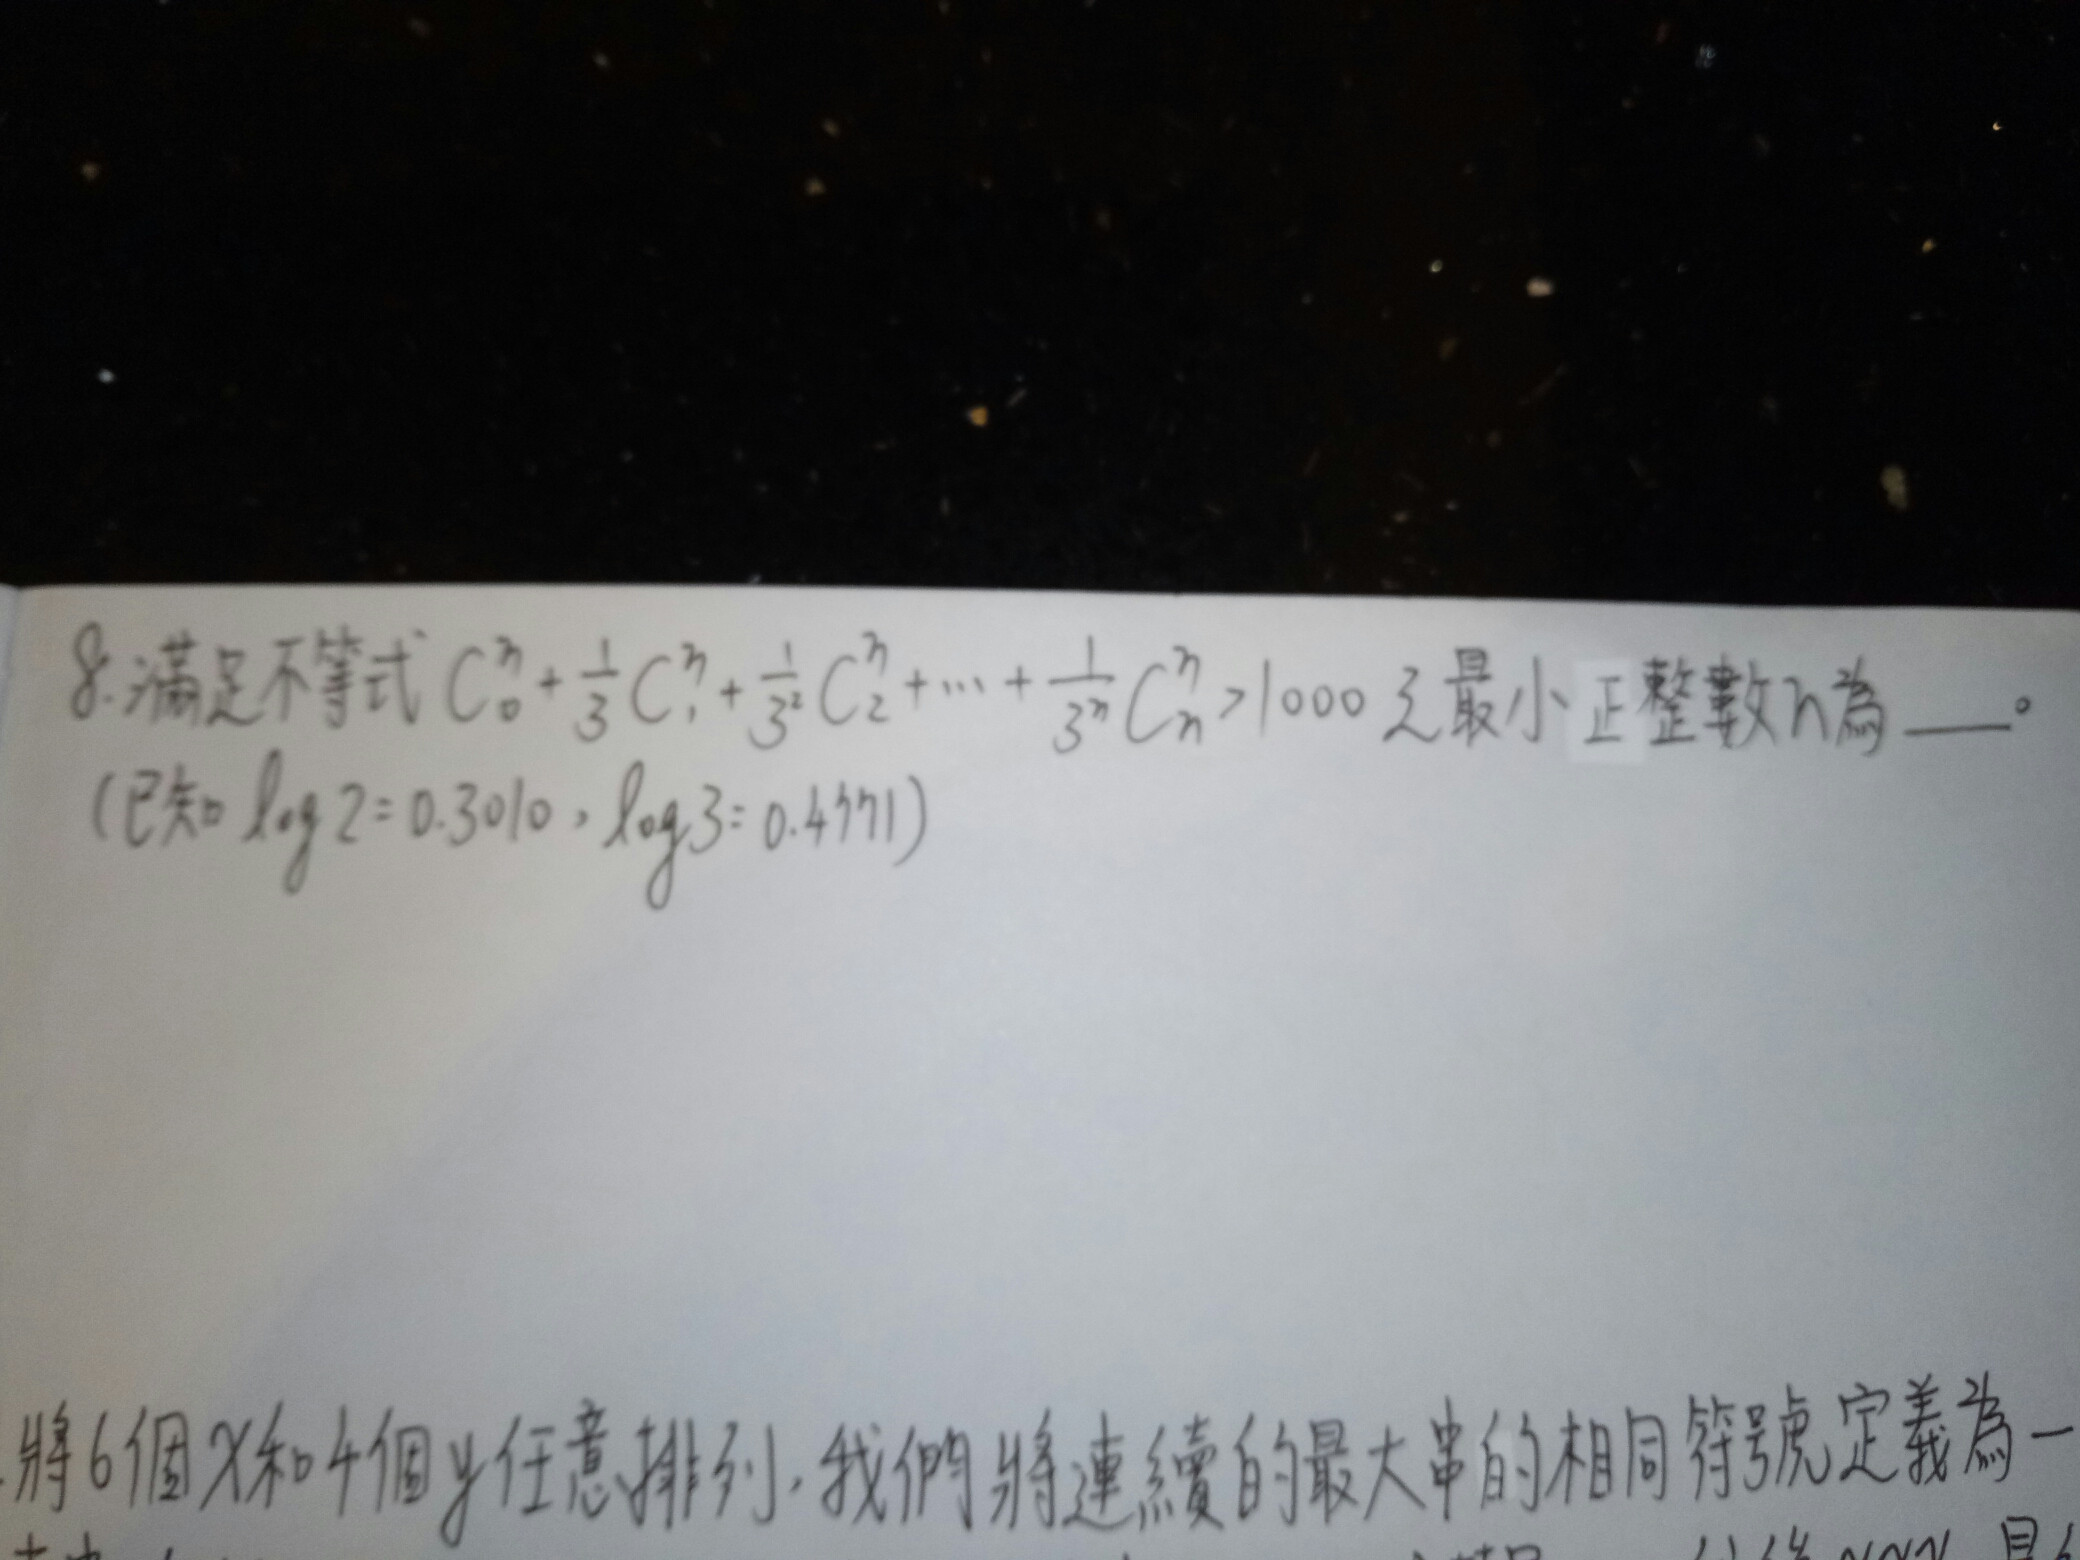 8. 滿足不等式 C₀ⁿ + 1/3 C₁ⁿ + 1/3² C₂ⁿ + … + 1/3ⁿ Cₙⁿ > 1000 之最小正整數n為 ___。
(已知 log 2 = 0.3010,log 3 = 0.4771)
將6個x和4個y任意排列,我們將連續的最大串的相同符號定義為一